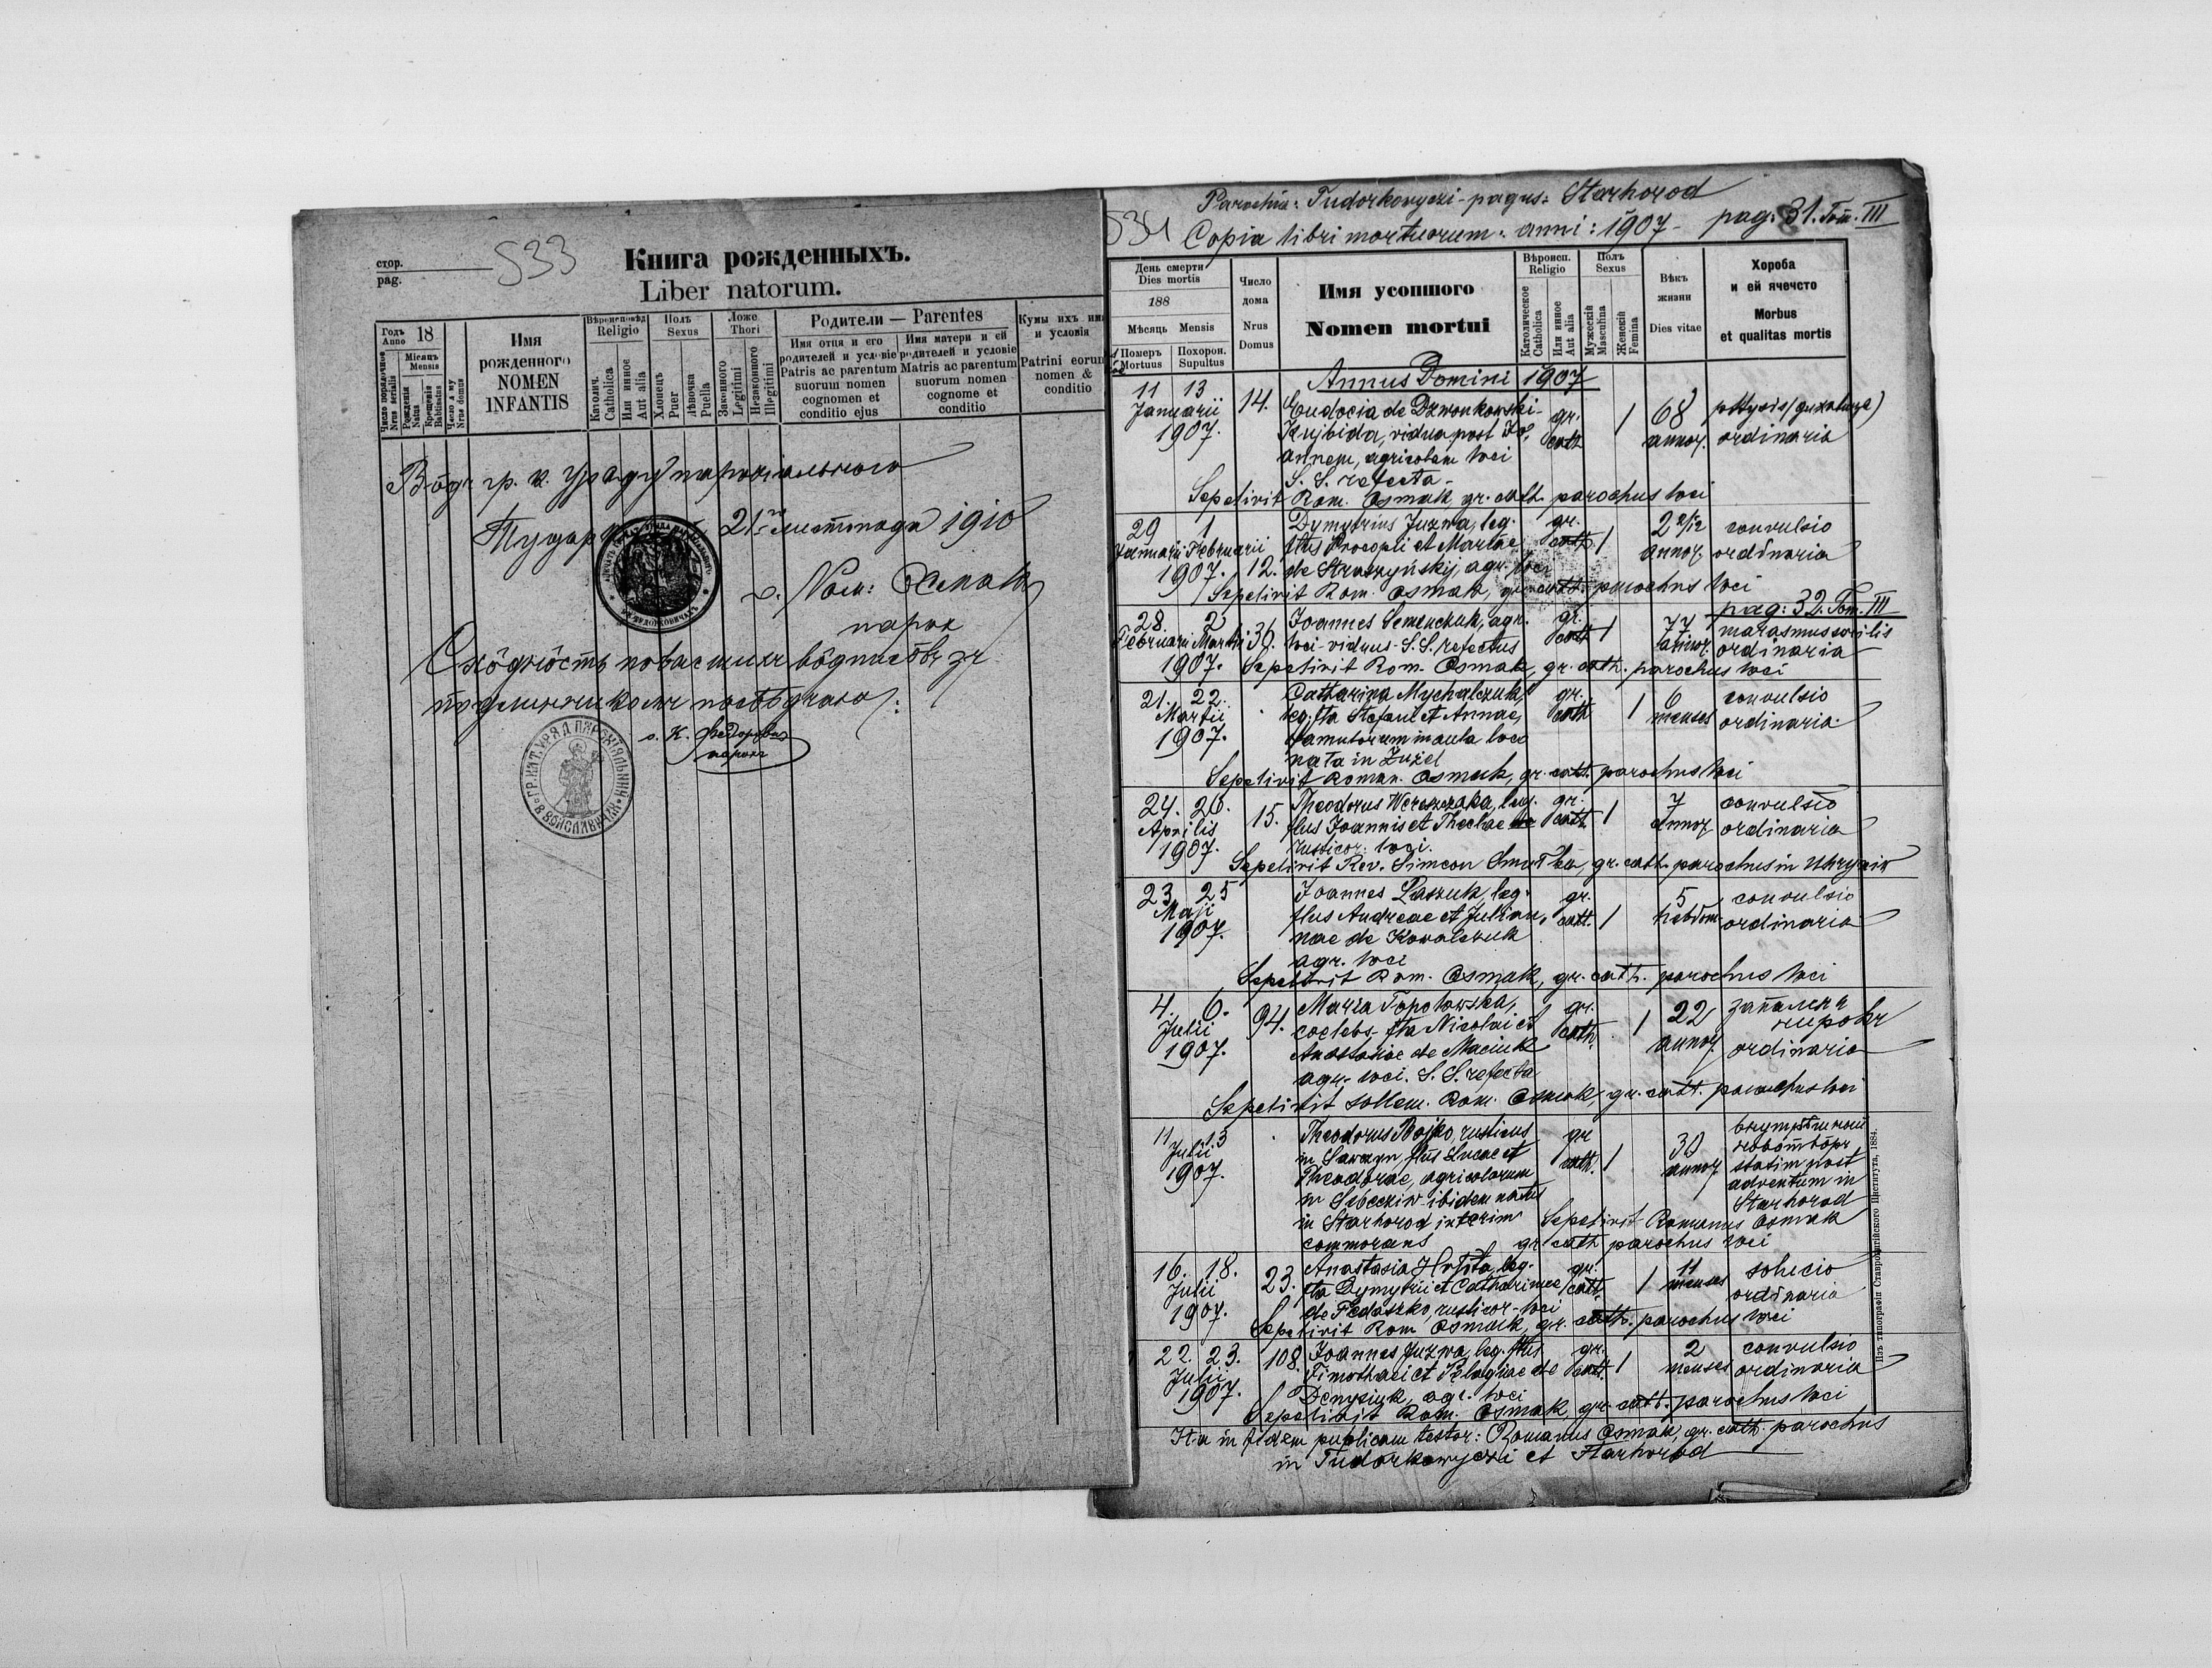 стор.
pag.
533
Книга рожденныхъ.
Liber natorum.
Годъ 18
Anno
Мѣсяцъ
Mensis
Число порядочное
Nrus serialis
Рожденія
Natus
Крещенія
Babtisatus
Число дому
Nrus domus
Имя
рожденного
NOMEN
INFANTIS
Вѣроисповѣд
Religio
Католич.
Catholica
Или инное
Aut alia
Полъ
Sexus
Хлопецъ
Puer
Дѣвочка
Puella
Ложе
Thori
Законного
Legitimi
Незаконного
Illegitimi
Родители — Parentes
Имя отца и его
родителей и условіе
Patris ac parentum
suorum nomen
cognomen et
conditio ejus
Имя матери и ей
родителей и условіе
Matris ac parentum
suorum nomen
cognome et
conditio
Кумы ихъ имя
и условія
Patrini eorum
nomen &
conditio
Вôдъ гр. к. Уряду парохіального
Тудорк 21го листопада 1910
о. Ром: Осмакъ
парох
Схôдность повисшихъ вôдписôвъ зъ
подлинникомъ посвѣдчаю:
о. К. Федорович
парохъ
Parochia: Tudorkowyczi - pagus: Starhorod
531 Copia libri mortuorum: anni: 1907 - pag: 31. Tom. III
День смерти
Dies mortis
188
Мѣсяць Mensis
Померъ
Mortuus
Похорон.
Supultus
Число
дома
Nrus
Domus
Имя усопшого
Nomen mortui
Вѣроисп.
Religio
Католическое
Catholica
Или инное
Aut alia
Полъ
Sexus
Мужескій
Masculina
Женскій
Femina
Вѣкъ
жизни
Dies vitae
Хороба
и ей ячество
Morbus
et qualitas mortis
Annus Domini 1907
11 13 Januarii 1907. 14. Eudocia de Dzwonkowski- gr. cath. 1 68 annor.
Kujbida, vidua post Jo- ordinaria
annem, agricolam loci
S. S. refecta -
Sepelivit Rom. Osmak, gr. cath. parochus loci
29 Januarii 1 Februarii 1907. 12. Dymytrius Juzwa, leg. gr. cath. 1 2 2/12 annor. convulsio
flius Procopii et Mariae ordinaria
de Straszyńskij, agr. loci
Sepelivit Rom. Osmak, gr. cath. parochus loci
pag: 32. Tom. III
28 Februarii 2 Martii 1907. 36. Joannes Semenchuk, agr. gr. cath. 1 77 annor. marasmus senilis
loci - viduus - S. S. refectus ordinaria
Sepelivit Rom. Osmak, gr. cath. parochus loci
21. 22. Martii 1907. Catharina Mychalczuk, gr. cath. 1 6 menses convulsio
leg. flia Stefani et Annae, ordinaria
famulorum in aula loco
nata in Żużel
Sepelivit Roman. Osmak, gr. cath. parochus loci
24. 26. Aprilis 1907. 15. Theodorus Wereszczaka, leg. gr. cath. 1 7 annor. convulsio
flius Joannis et Theclae ordinaria
rusticor. loci.
Sepelivit Rev. Simeon gr. cath. parochus in Uhryniw
23 25 Maji 1907. Joannes Łaszuk, leg. gr. cath. 1 5 hebdom. convulsio
flius Andreae et Julian- ordinaria
nae de Kowalczuk
agr. loci
Sepelivit Rom. Osmak, gr. cath. parochus loci
4. 6. Julii 1907. 94. Maria Topolowska, gr. cath. 1 22 annor.
coelebs - flia Nicolai et
Anastasiae de Maciuk ordinaria
agr. loci. S. S. refecta
Sepelivit sollem. Rom. Osmak, gr. cath. parochus loci
11 13 Julii 1907. Theodorus Bojko, rusticus gr. cath. 1 30 annor.
in flius Lucae et
Theodorae, agricolarum statim post
in ibidem natus adventum in
in Starhorod interim Starhorod
commorans Sepelivit Romanus Osmak
gr. cath. parochus loci
16. 18. Julii 1907. 23. Anastasia leg. gr. cath. 1 11 menses
flia Dymytrii et Catharinae ordinaria
de Fedaszko, rusticor. loci
Sepelivit Rom. Osmak, gr. cath. parochus loci
22. 23. Julii 1907. 108. Joannes Juzwa, leg. flius gr. cath. 1 2 menses convulsio
Timothaei et Pelagiae de ordinaria
Denysiuk, agr. loci
Sepelivit Rom. Osmak, gr. cath. parochus loci
Ita in fidem publicam testor: Romanus Osmak, gr. cath. parochus
in Tudorkowyczi et Starhorod
Изъ типографіи Ставропигійского Института, 1884.